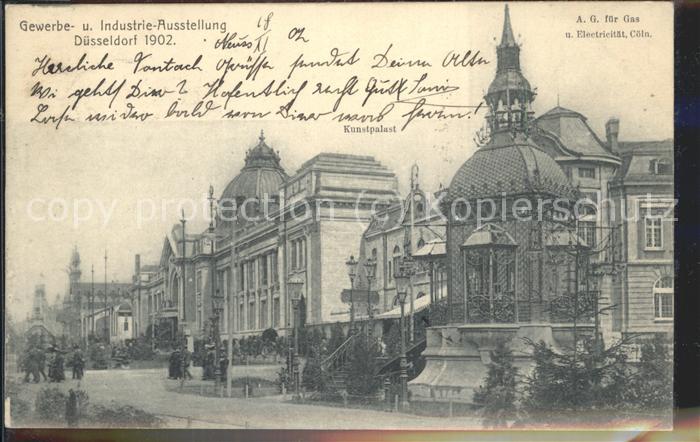 Gewerbe- u. Industrie-Ausstellung
Düsseldorf 1902.
Neuss 18/XI 02
A. G. für Gas
u. Electricität, Cöln.
Herzliche Grüsse sendet Deine
Wie geht's Dir? Hoffentlich recht gut
wieder bald von Dir was hören!
Kunstpalast
copy protection · Kopierschutz